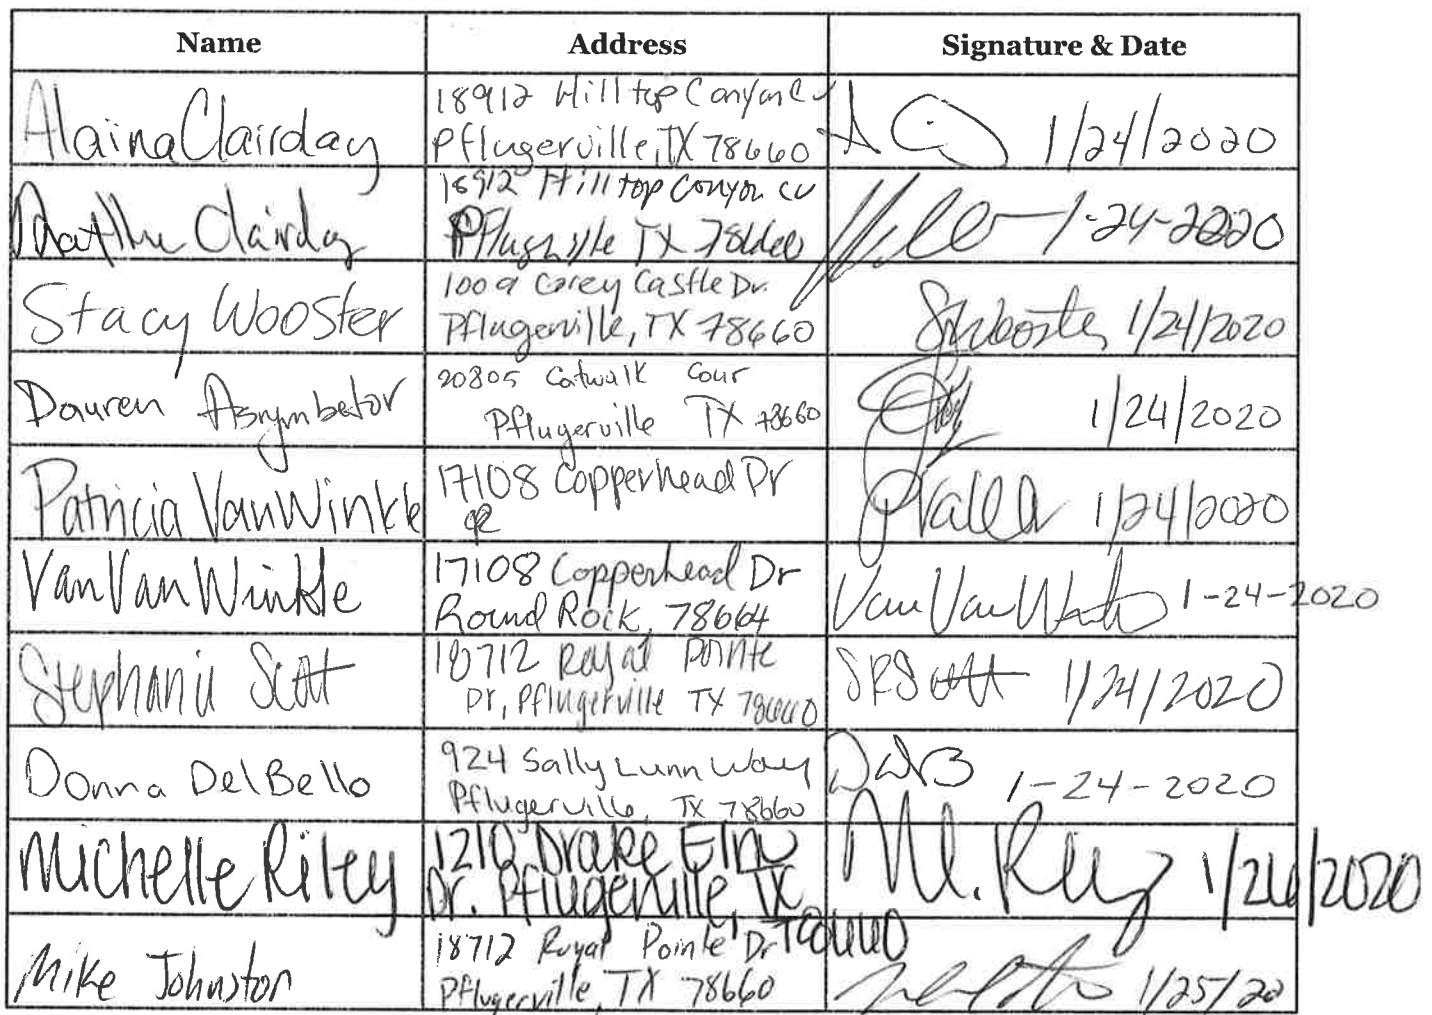 Name Address Signature & Date
Alaina Clairday 18912 Hilltop Canyon Cv
Pflugerville, TX 78660 1/24/2020
Matthew Clairday 18912 Hilltop Canyon cv
Pflugerville TX 78660 1-24-2020
Stacy Wooster 1009 Corey Castle Dr.
Pflugerville, TX 78660 SWooster 1/24/2020
Dauren Asrymbetov 20805 Catwalk Cour
Pflugerville TX 78660 1/24/2020
Patricia VanWinkle 17108 Copperhead Dr
1/24/2020
Van Van Winkle 17108 Copperhead Dr
Round Rock, 78664 Van Van Winkle 1-24-2020
Stephanie Scott 18712 Royal Pointe
Dr, Pflugerville TX 78660 SRScott 1/24/2020
Donna DelBello 924 Sally Lunn Way
Pflugerville, TX 78660 1-24-2020
Michelle Riley 1210 Drake Elm
Dr. Pflugerville, TX
78660 M. Riley 1/26/2020
Mike Johnston 18712 Royal Pointe Dr
Pflugerville, TX 78660 1/25/20